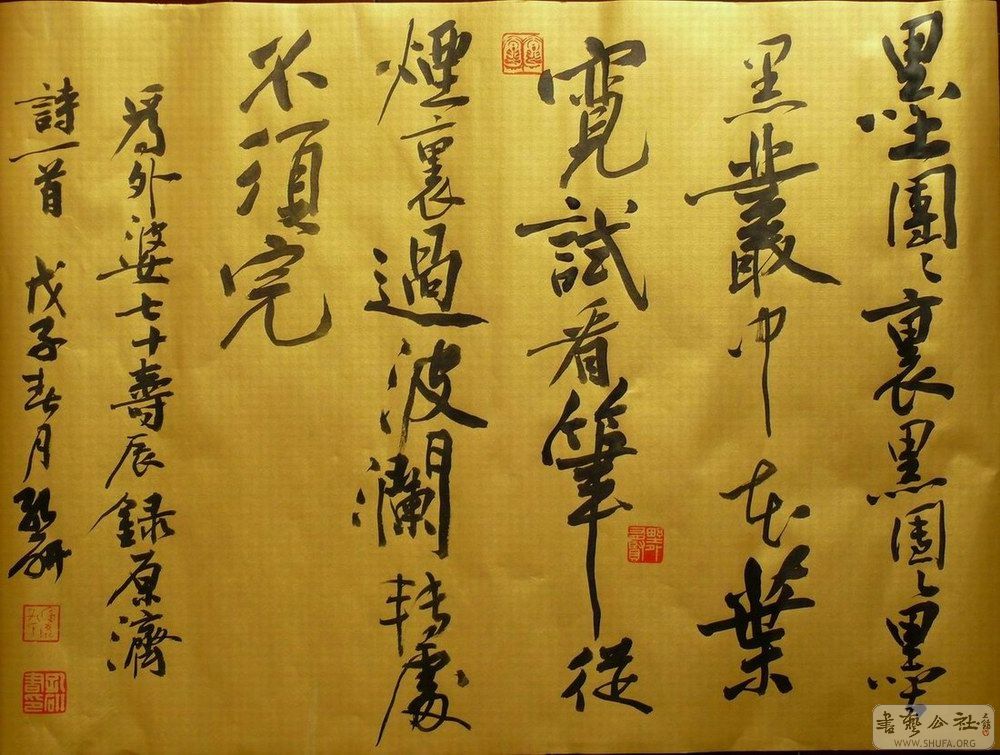 墨團〻裏黑團〻墨
黑叢中花葉
寬試看筆從
煙裏過波瀾轉處
不須完
爲外婆七十壽辰録原濟
詩一首 戊子春月
書藝公社
WWW.SHUFA.ORG